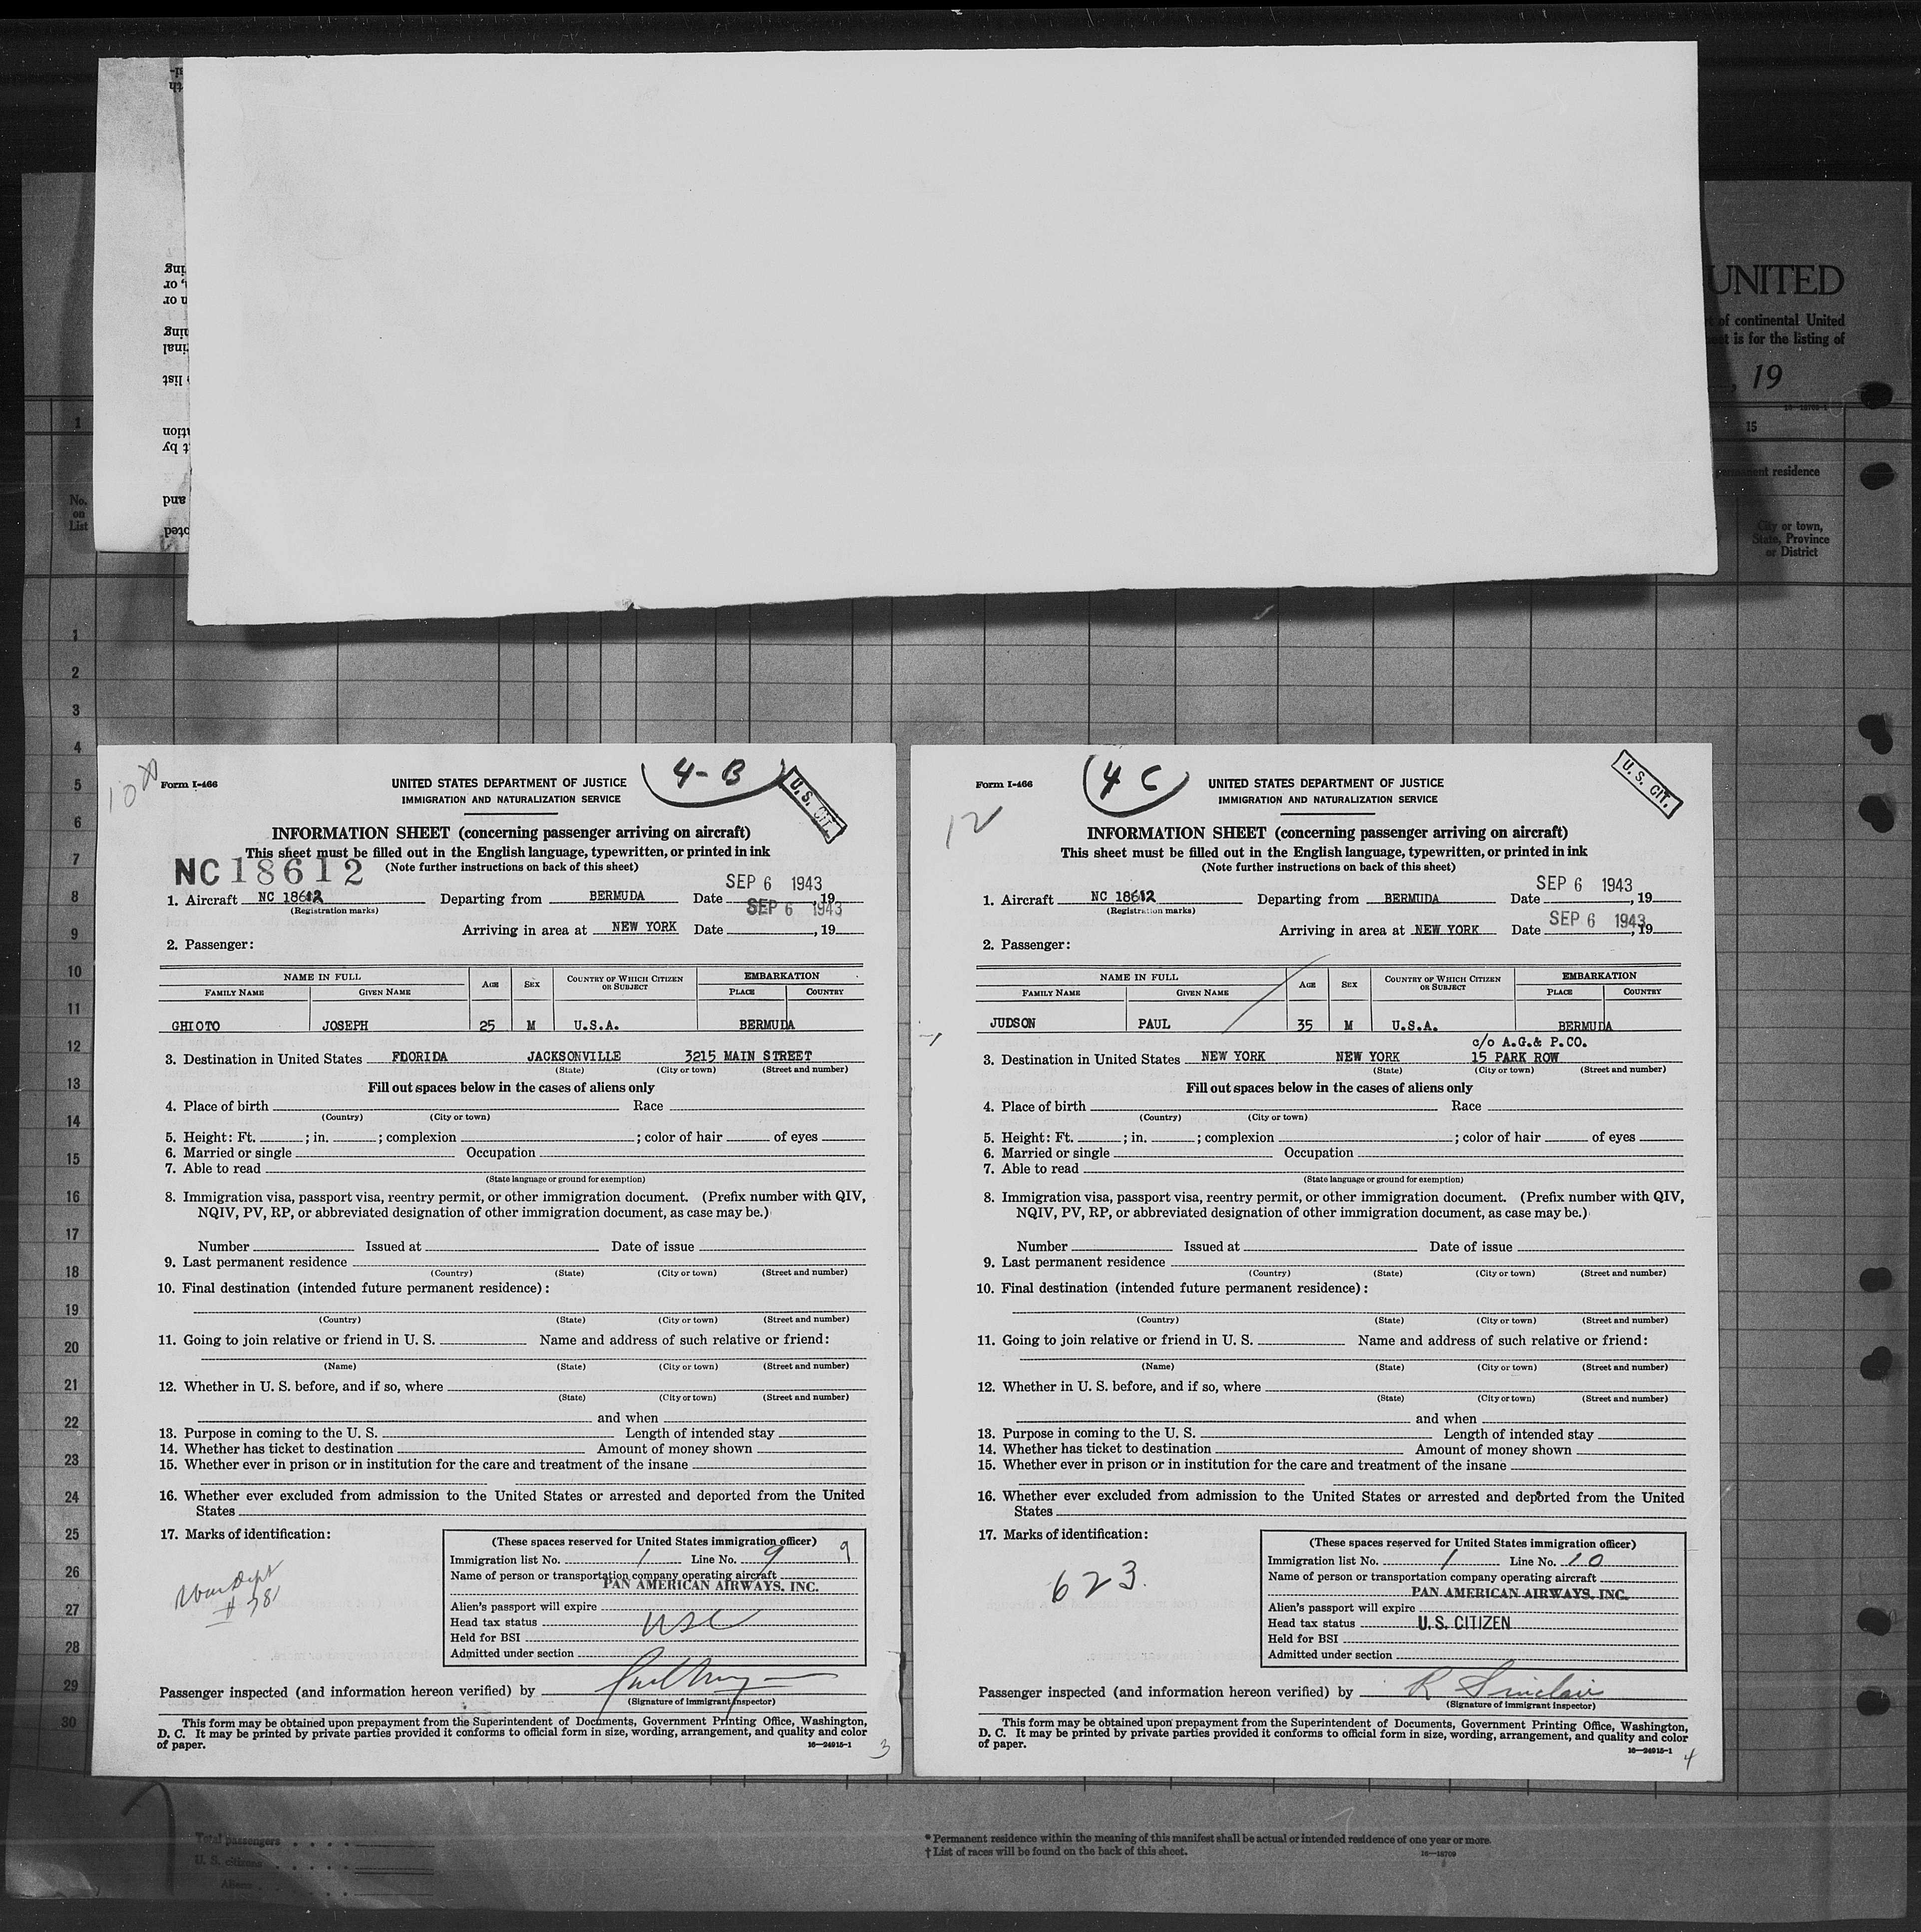 UNITED
of continental United
is for the listing of
, 19
16—18709-1
1
15
residence
No.
on
List
City or town,
State, Province
or District
1
2
3
4
5
6
7
8
9
10
11
12
13
14
15
16
17
18
19
20
21
22
23
24
25
26
27
28
29
30
Form I-466
4-B
U. S. CIT.
UNITED STATES DEPARTMENT OF JUSTICE
IMMIGRATION AND NATURALIZATION SERVICE
INFORMATION SHEET (concerning passenger arriving on aircraft)
This sheet must be filled out in the English language, typewritten, or printed in ink
NC 18612
(Note further instructions on back of this sheet)
SEP 6 1943
1. Aircraft NC 18612 Departing from BERMUDA Date , 19
(Registration marks)
SEP 6 1943
Arriving in area at NEW YORK Date , 19
2. Passenger:
NAME IN FULL AGE SEX COUNTRY OF WHICH CITIZEN OR SUBJECT EMBARKATION
FAMILY NAME GIVEN NAME PLACE COUNTRY
GHIOTO JOSEPH 25 M U.S.A. BERMUDA
3. Destination in United States FDORIDA JACKSONVILLE 3215 MAIN STREET
(State) (City or town) (Street and number)
Fill out spaces below in the cases of aliens only
4. Place of birth Race
(Country) (City or town)
5. Height: Ft. ; in. ; complexion ; color of hair of eyes
6. Married or single Occupation
7. Able to read
(State language or ground for exemption)
8. Immigration visa, passport visa, reentry permit, or other immigration document. (Prefix number with QIV,
NQIV, PV, RP, or abbreviated designation of other immigration document, as case may be.)
Number Issued at Date of issue
9. Last permanent residence
(Country) (State) (City or town) (Street and number)
10. Final destination (intended future permanent residence):
(Country) (State) (City or town) (Street and number)
11. Going to join relative or friend in U. S. Name and address of such relative or friend:
(Name) (State) (City or town) (Street and number)
12. Whether in U. S. before, and if so, where
(State) (City or town) (Street and number)
and when
13. Purpose in coming to the U. S. Length of intended stay
14. Whether has ticket to destination Amount of money shown
15. Whether ever in prison or in institution for the care and treatment of the insane
16. Whether ever excluded from admission to the United States or arrested and deported from the United
States
17. Marks of identification:
War Dept
(These spaces reserved for United States immigration officer)
Immigration list No. 1 Line No. 9 9
Name of person or transportation company operating aircraft
PAN AMERICAN AIRWAYS, INC.
Alien's passport will expire
Head tax status USC
Held for BSI
Admitted under section
Passenger inspected (and information hereon verified) by
(Signature of immigrant inspector)
This form may be obtained upon prepayment from the Superintendent of Documents, Government Printing Office, Washington,
D. C. It may be printed by private parties provided it conforms to official form in size, wording, arrangement, and quality and color
of paper.
16—24915-1
3
Form I-466
4 C
U. S. CIT.
12
UNITED STATES DEPARTMENT OF JUSTICE
IMMIGRATION AND NATURALIZATION SERVICE
INFORMATION SHEET (concerning passenger arriving on aircraft)
This sheet must be filled out in the English language, typewritten, or printed in ink
(Note further instructions on back of this sheet)
SEP 6 1943
1. Aircraft NC 18612 Departing from BERMUDA Date , 19
(Registration marks)
SEP 6 1943
Arriving in area at NEW YORK Date , 19
2. Passenger:
NAME IN FULL AGE SEX COUNTRY OF WHICH CITIZEN OR SUBJECT EMBARKATION
FAMILY NAME GIVEN NAME PLACE COUNTRY
JUDSON PAUL 35 M U.S.A. BERMUDA
c/o A.G.& P.CO.
3. Destination in United States NEW YORK NEW YORK 15 PARK ROW
(State) (City or town) (Street and number)
Fill out spaces below in the cases of aliens only
4. Place of birth Race
(Country) (City or town)
5. Height: Ft. ; in. ; complexion ; color of hair of eyes
6. Married or single Occupation
7. Able to read
(State language or ground for exemption)
8. Immigration visa, passport visa, reentry permit, or other immigration document. (Prefix number with QIV,
NQIV, PV, RP, or abbreviated designation of other immigration document, as case may be.)
Number Issued at Date of issue
9. Last permanent residence
(Country) (State) (City or town) (Street and number)
10. Final destination (intended future permanent residence):
(Country) (State) (City or town) (Street and number)
11. Going to join relative or friend in U. S. Name and address of such relative or friend:
(Name) (State) (City or town) (Street and number)
12. Whether in U. S. before, and if so, where
(State) (City or town) (Street and number)
and when
13. Purpose in coming to the U. S. Length of intended stay
14. Whether has ticket to destination Amount of money shown
15. Whether ever in prison or in institution for the care and treatment of the insane
16. Whether ever excluded from admission to the United States or arrested and deported from the United
States
17. Marks of identification:
623.
(These spaces reserved for United States immigration officer)
Immigration list No. 1 Line No. 10
Name of person or transportation company operating aircraft
PAN AMERICAN AIRWAYS, INC.
Alien's passport will expire
Head tax status U. S. CITIZEN
Held for BSI
Admitted under section
Passenger inspected (and information hereon verified) by R Sinclair
(Signature of immigrant inspector)
This form may be obtained upon prepayment from the Superintendent of Documents, Government Printing Office, Washington,
D. C. It may be printed by private parties provided it conforms to official form in size, wording, arrangement, and quality and color
of paper.
16—24915-1
4
Total passengers
U. S. citizens
Aliens
* Permanent residence within the meaning of this manifest shall be actual or intended residence of one year or more.
† List of races will be found on the back of this sheet.
16—18709